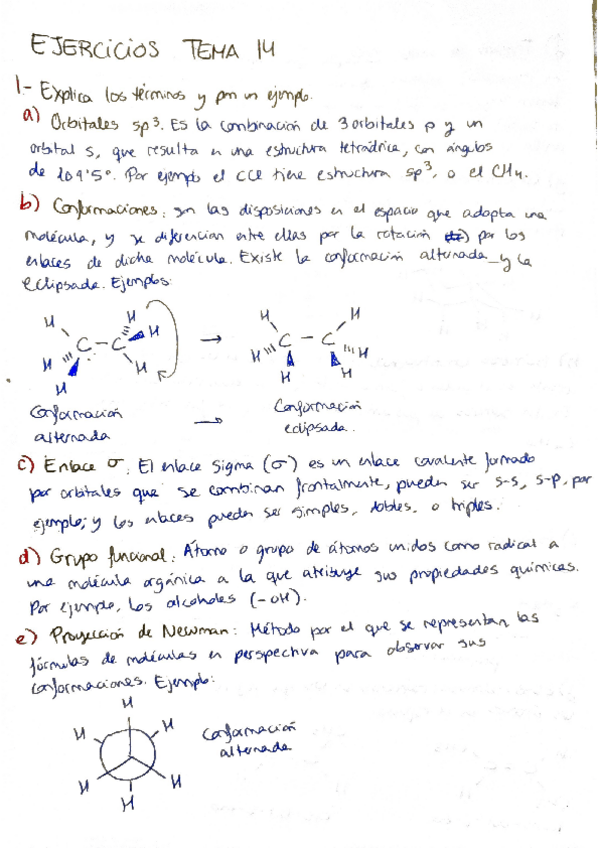 EJERCICIOS TEMA 14
1- Explica los términos y pon un ejemplo.
a) Orbitales sp³. Es la combinación de 3 orbitales p y un
orbital s, que resulta en una estructura tetraédrica, con ángulos
de 109'5°. Por ejemplo el CCl tiene estructura sp³, o el CH4.
b) Conformaciones: son las disposiciones en el espacio que adopta una
molécula, y se diferencian entre ellas por la rotación por los
enlaces de dicha molécula. Existe la conformación alternada y la
eclipsada. Ejemplos:
H H H H H
C - C → C - C
H H H H
H H H
Conformación → Conformación
alternada eclipsada.
c) Enlace σ: El enlace Sigma (σ) es un enlace covalente formado
por orbitales que se combinan frontalmente, pueden ser s-s, s-p, por
ejemplo; y los enlaces pueden ser simples, dobles, o triples.
d) Grupo funcional: Átomo o grupo de átomos unidos como radical a
una molécula orgánica a la que atribuye sus propiedades químicas.
Por ejemplo, los alcoholes (-OH).
e) Proyección de Newman: Método por el que se representan las
fórmulas de moléculas en perspectiva para observar sus
conformaciones. Ejemplo:
H
H H Conformación
alternada
H H
H